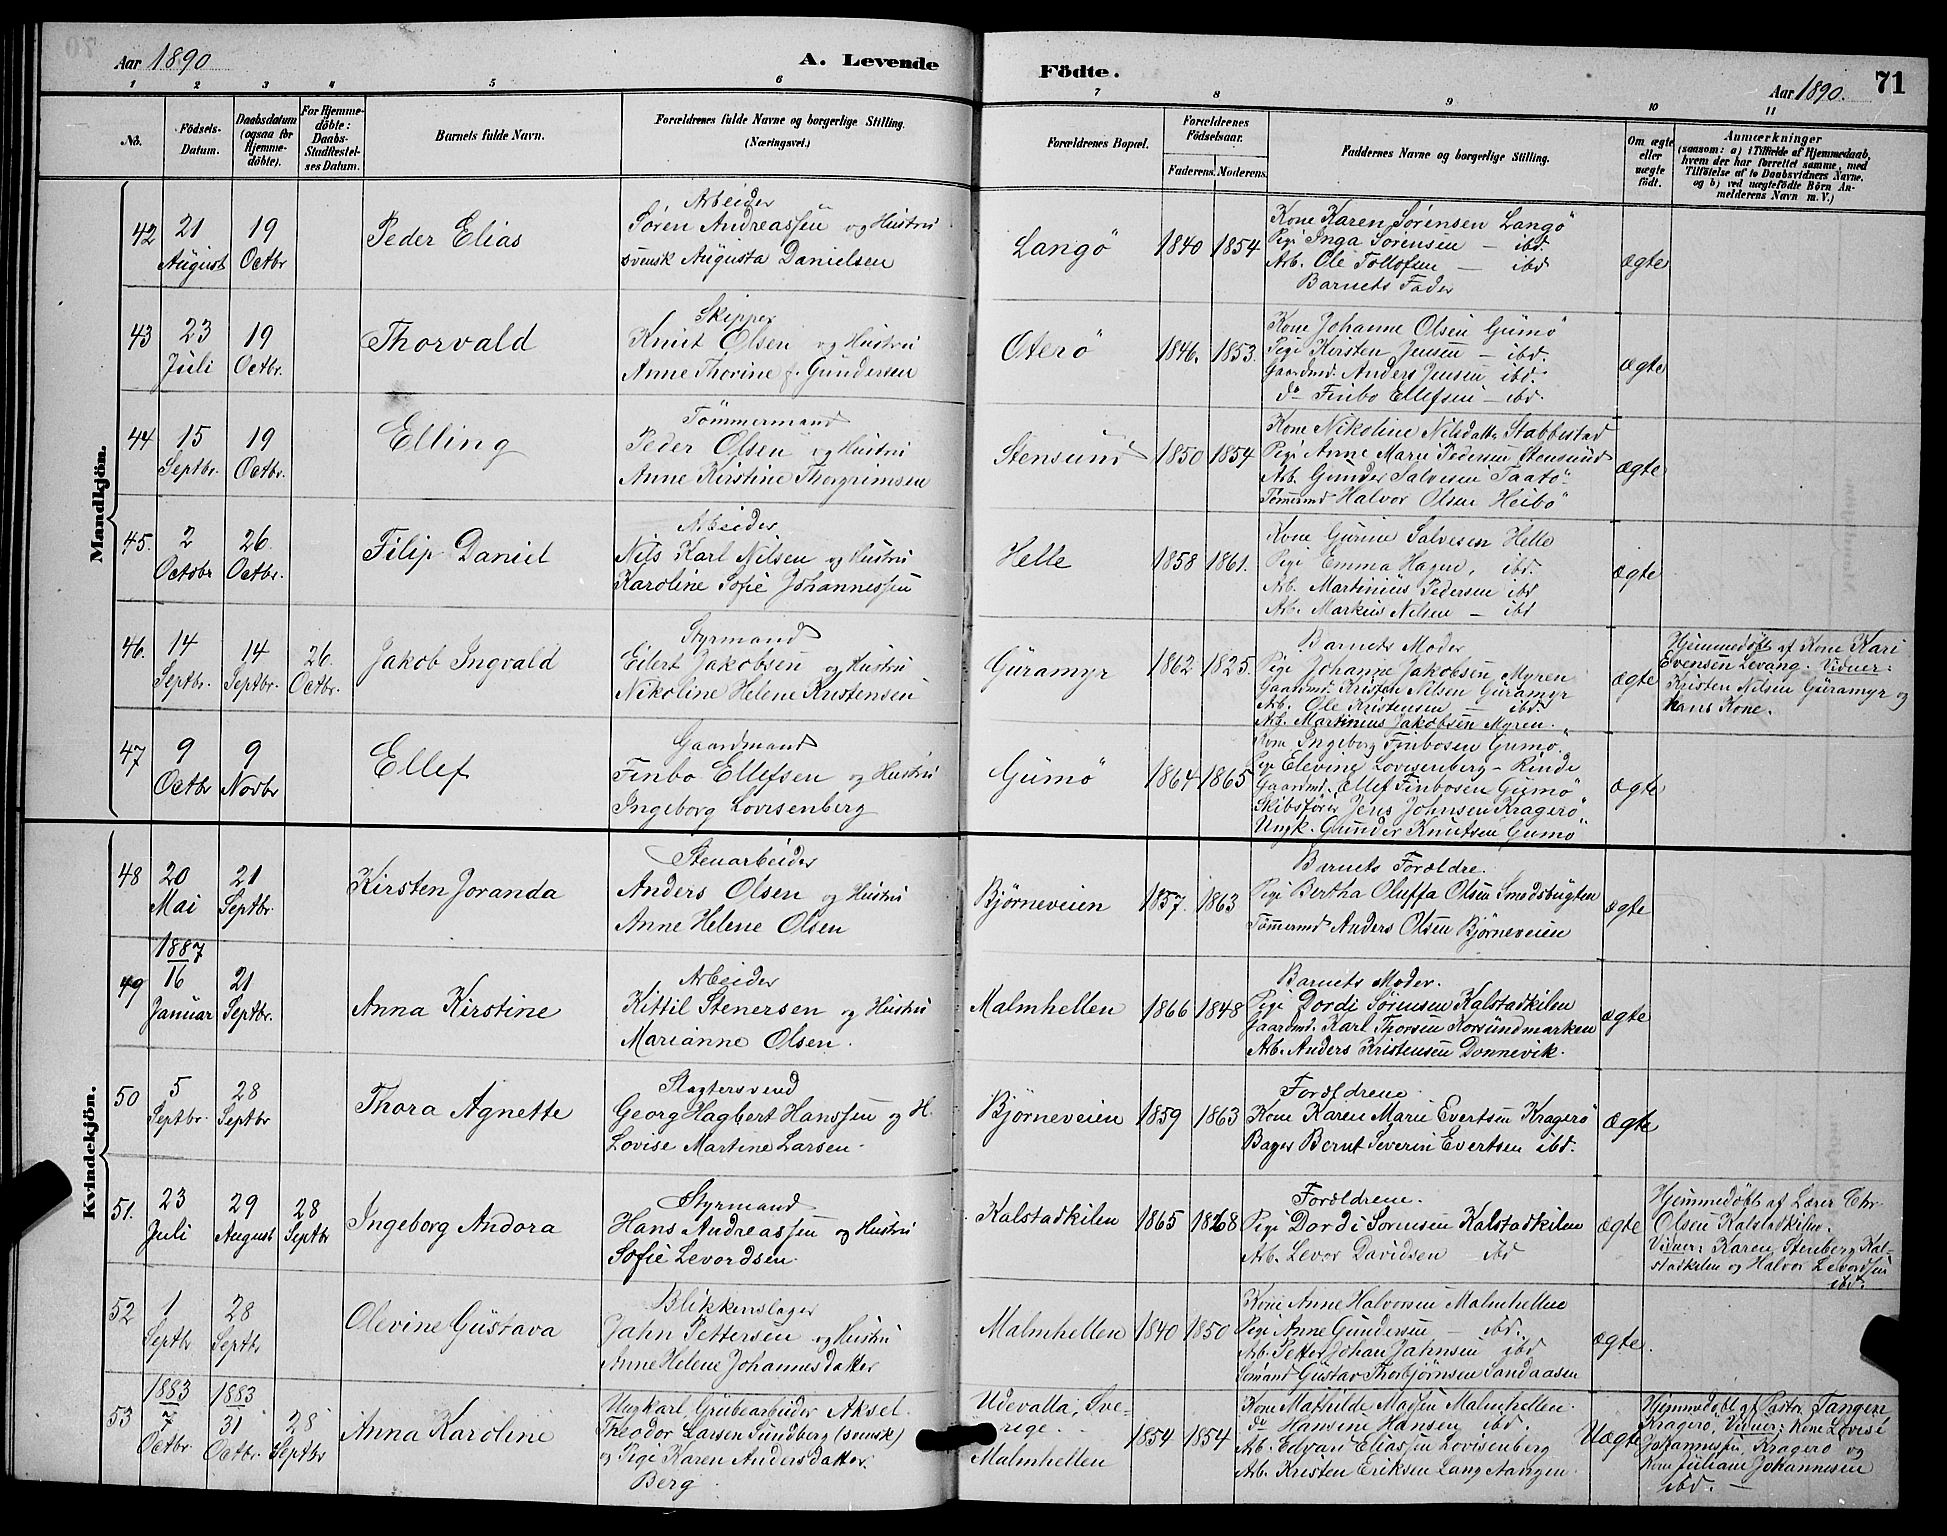 Aar 1890
A. Levende
Födte.
Aar 1890.
71
1 2 3 4 5 6 7 8 9 10 11
No.
Födsels-
Datum.
Daabsdatum
(ogsaa for
Hjemme-
döbte).
For Hjemme-
döbte:
Daabs-
Stadfestel-
ses Datum.
Barnets fulde Navn.
Forældrenes fulde Navne og borgerlige Stilling.
(Næringsvei.)
Forældrenes Bopæl.
Forældrenes
Födselsaar.
Faderens. Moderens.
Faddernes Navne og borgerlige Stilling.
Om ægte
eller
uægte
födt.
Anmærkninger
(saasom: a) i Tilfælde af Hjemmedaab,
hvem der har forrettet samme, med
Tilföielse af to Daabsvidners Navne,
og b) ved uægtefödte Börn An-
melderens Navn m. V.)
Mandkjön.
42
21
August
19
Octbr
Peder Elias
Arbeider
Sören Andreassen og Hustru
svensk Augusta Danielsen
Langö
1840 1854
Kone Karen Sörensen Langö
Pige Inga Sörensen — ibd.
Arb. Ole Tollofsen — ibd
Barnets Fader
ægte
43
23
Juli
19
Octbr.
Thorvald
Skipper
Knut Olsen og Hustru
Anne Thorine f. Gundersen
Oterö
1846. 1853.
Kone Johanne Olsen Gumö
Pige Kirsten Jensen — ibd.
Gaardmd. Anders Jensen ibd.
do Finbo Ellefsen — ibd.
ægte
44
15
Septbr.
19
Octbr.
Elling
Tömmermand
Peder Olsen og Hustru
Anne Kirstine Thorgrimsen
Stensund
1850 1854
Kone Nikoline Nilsdatter Stabbestad
Pige Anne Marie Pedersen Stensund
Arb. Gunder Salvesen Taatö
Tömermd Halvor Olsen Heibö
ægte
45.
2
Octobr
26
Octbr.
Filip Daniel
Arbeider
Nils Karl Nilsen og Hustru
Karoline Sofie Johannessen
Helle
1858 1861.
Kone Gunne Salvesen Helle
Pige Emma Hagen, ibd.
Arb. Martinius Pedersen ibd
Arb. Markus Nilsen — ibd
ægte
46.
14
Septbr.
14
Septbr.
26.
Octbr.
Jakob Ingvald
Styrmand
Eilert Jakobsen og Hustru
Nikoline Helene Kristensen
Guramyr
1862. 1825.
Barnets Moder
Pige Johanne Jakobsen Myren
Gaardmd. Kristen Nilsen Guramyr
Arb. Ole Kristensen — ibd.
Arb. Martinius Jakobsen Myren.
ægte
Hjemmedöbt af Kone Kari
Evensen Levang. Vidner:
Kristen Nilsen Guramyr og
Hans Kone.
47
9
Octbr
9
Novbr
Ellef
Gaardmand
Finbo Ellefsen og Hustru
Ingeborg Lovisenberg
Gumö
1864 1865
Kone Ingeborg Finbosen Gumö.
Pige Elevine Lovisenberg — Rinde
Gaardmd. Ellef Finbosen Gumö
Skibsförer Jens Johnsen Kragerö
Ungk. Gunder Knutsen Gumö
ægte
Kvindekjön.
48
20
Mai
21
Septbr.
Kirsten Joranda
Stenarbeider
Anders Olsen og Hustru
Anne Helene Olsen
Björneveien
1857. 1863
Barnets Forældre.
Pige Bertha Oluffa Olsen Smedsbugten
Tömermd Anders Olsen Björneveien
ægte
49
1887
16
Januar
21
Septbr.
Anna Kirstine
Arbeider
Kittil Stenersen og Hustru
Marianne Olsen.
Malmhellen
1866 1848
Barnets Moder.
Pige Dordi Sörensen Kalstadkilen
Gaardmd. Karl Thorsen Korsundmarken
Arb. Anders Kristensen Donnevik.
ægte
50
5
Septbr.
28
Septbr
Thora Agnette
Slagtersvend
Georg Hagbert Hanssen og H.
Lovise Martine Larsen
Björneveien
1859 1863
Forældrene
Kone Karen Marie Evertsen Kragerö
Bager Bernt Severin Evertsen ibd.
ægte
51.
23
Juli
29
August
28
Septbr
Ingeborg Andora
Styrmand
Hans Andreassen og Hustru
Sofie Levordsen
Kalstadkilen
1865 1868
Forældrene.
Pige Dordi Sörensen Kalstadkilen
Arb. Levor Davidsen ibd
ægte
Hjemmedöbt af Lærer Chr
Olsen Kalstadkilen.
Vidner: Karen Stenberg Kal-
stadkilen og Halvor Levordsen
ibd.
52
1
Septbr
28
Septbr
Olevine Gustava
Blikkenslager
Jahn Pettersen og Hustru
Anne Helene Johannesdatter
Malmhellen
1840 1850
Kone Anne Halvorsen Malmhellen
Pige Anne Gundersen — ibd.
Arb. Petter Johan Jahnsen ibd
Sömand Gustav Thorbjörnsen Sandaasen
ægte.
53
1883
7
Octbr.
1883
31
Octbr.
28
Septbr
Anna Karoline
Ungkarl, Grubearbeider Aksel
Theodor Larsen Sundberg (svensk)
og Pige Karen Andersdatter
Berg.
Udevalla, Sve-
rige.
Malmhellen
1854 1854
Kone Mathilde Madsen Malmhellen.
do Hansine Hansen ibd.
Arb. Edvard Eliassen Lovisenberg
Arb. Kristen Eriksen Lang Aavigen
Uægte
Hjemmedöbt af Pastor Tangen
Kragerö, Vidner: Kone Lovise
Johannessen, Kragerö og
Kone Juliane Johannesen
ibd. —